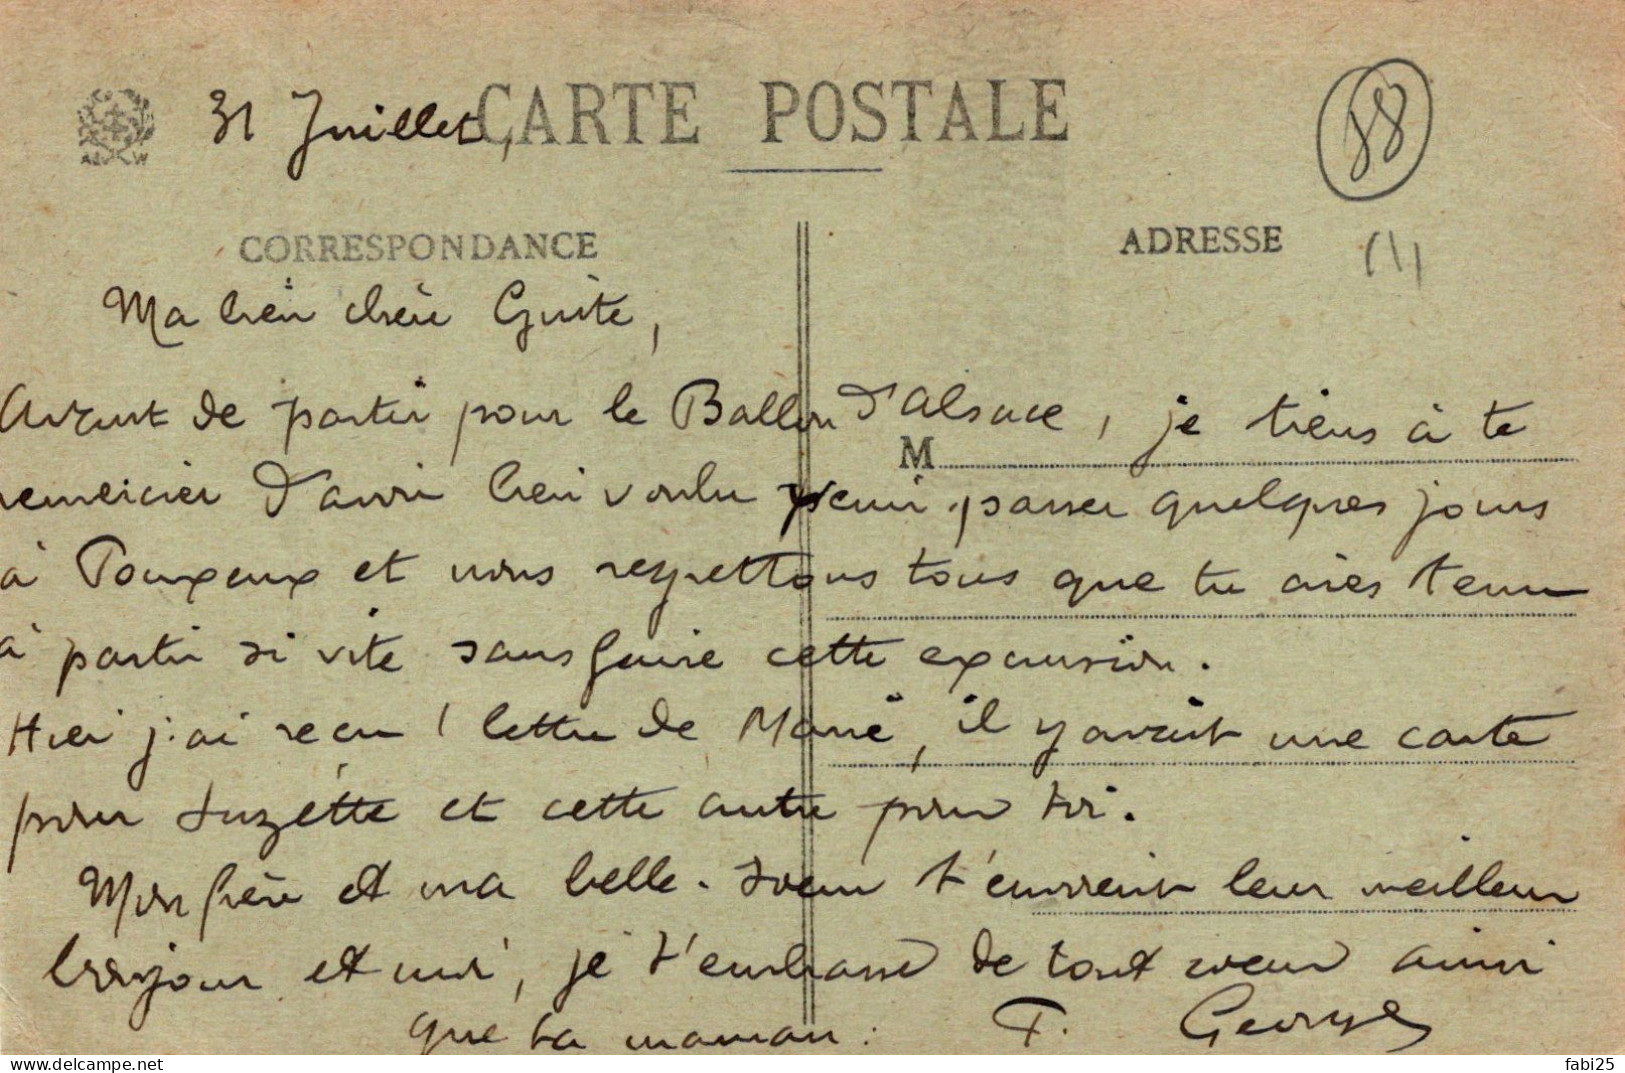 31 Juillet,
CARTE POSTALE
88
CORRESPONDANCE
ADRESSE
Ma bien chère Guite,
Avant de partir pour le Ballon d'Alsace, je tiens à te
M
remercier d'avoir bien voulu venir passer quelques jours
à Pouxeux et nous regrettons tous que tu aies tenu
à partir si vite sans faire cette excursion.
Hier j'ai reçu 1 lettre de, il y avait une carte
pour Suzette et cette autre pour toi.
Mon frère et ma belle-soeur t'envoient leur meilleur
bonjour et moi, je t'embrasse de tout coeur ainsi
que ta maman. T. Georges
fabi25